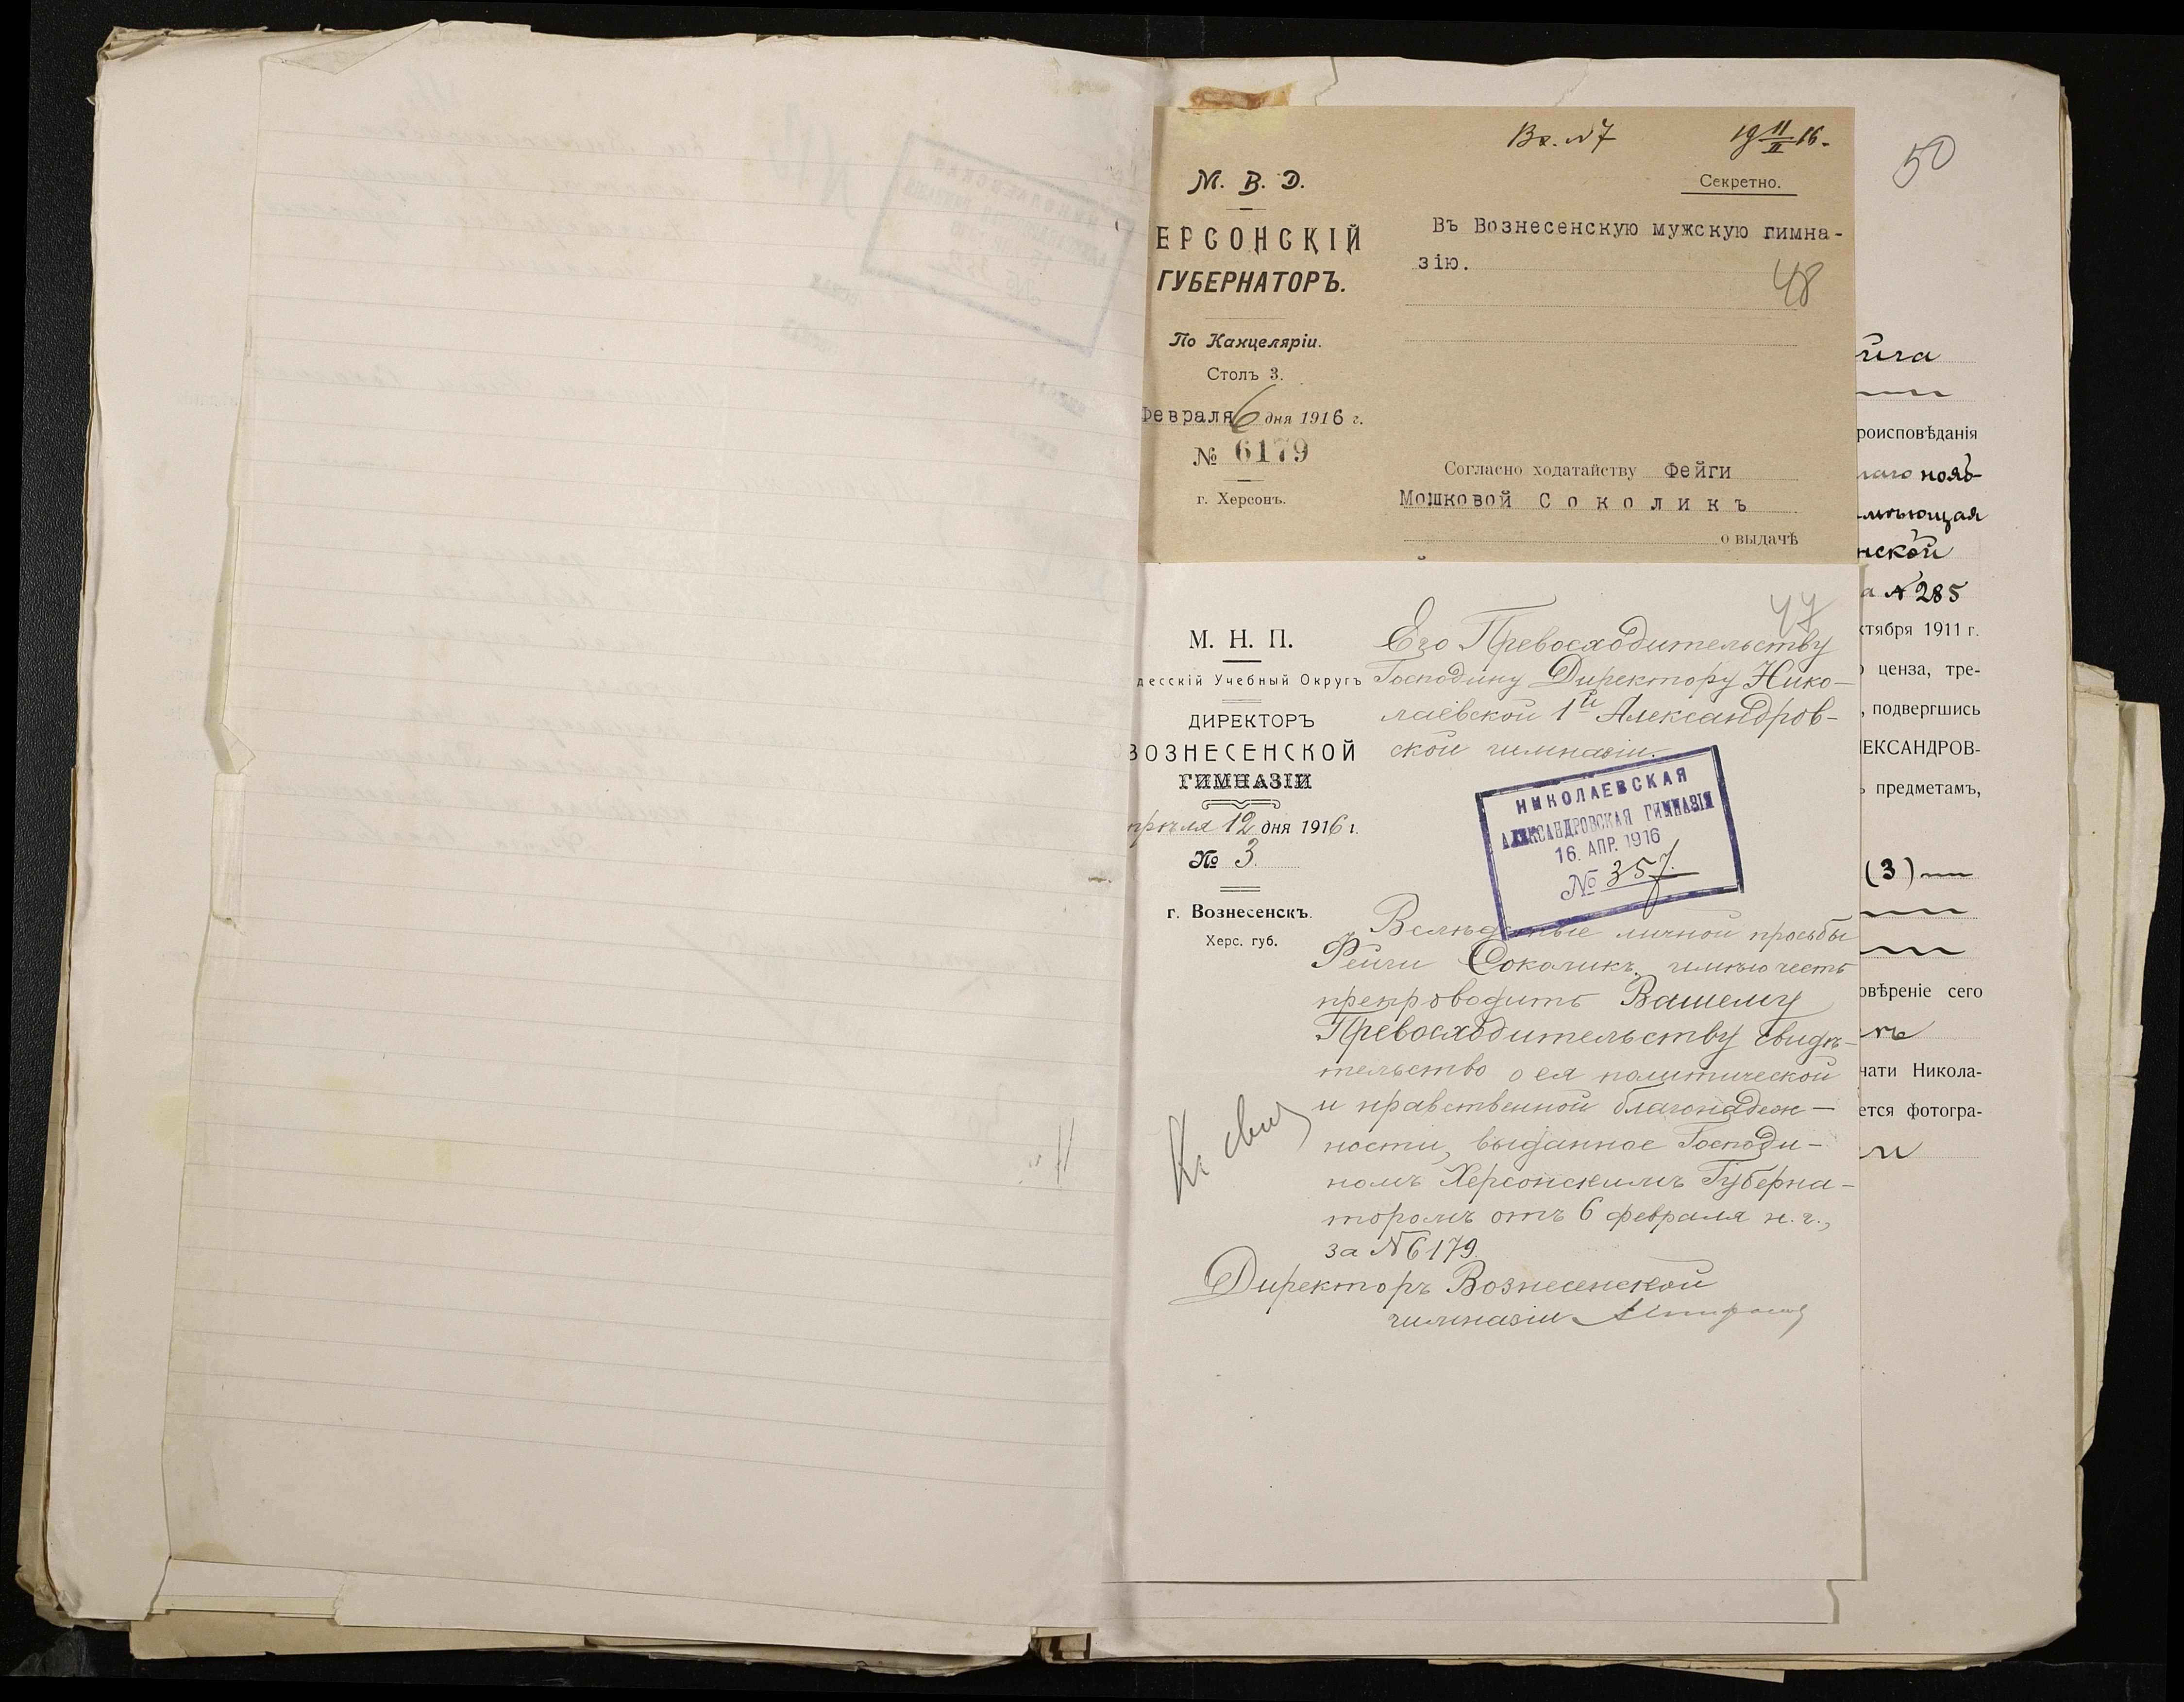 Вх. № 7
19 11/II 16.
50
М. В. Д.
Секретно.
ЕРСОНСКІЙ
ГУБЕРНАТОРЪ.
Въ Вознесенскую мужскую гимна-
зію.
48
По Канцеляріи.
Столъ 3.
Февраля 6 дня 1916 г.
№ 6179
г. Херсонъ.
Согласно ходатайству Фейги
Мошковой Соколикъ
о выдачѣ
47
М. Н. П.
десскій Учебный Округъ
ДИРЕКТОРЪ
ВОЗНЕСЕНСКОЙ
ГИМНАЗІИ
прѣля 12 дня 1916 г.
№ 3.
г. Вознесенскъ.
Херс. губ.
Его Превосходительству
Господину Директору Нико-
лаевской 1й Александров-
ской гимназіи.
НИКОЛАЕВСКАЯ
АЛЕКСАНДРОВСКАЯ ГИМНАЗІЯ
16. АПР. 1916
№ 357.
Вслѣдствіе личной просьбы
Фейги Соколикъ, имѣю честь
препроводить Вашему
Превосходительству свидѣ-
тельство о ея политической
и нравственной благонадеж-
ности, выданное Господи-
номъ Херсонскимъ Губерна-
торомъ отъ 6 февраля н. г.,
за № 6179.
Директоръ Вознесенской
гимназіи
йга
роисповѣданія
нояб-
нской
а № 285
ктября 1911 г.
ценза, тре-
, подвергшись
ЛЕКСАНДРОВ-
ъ предметамъ,
(3)
овѣреніе сего
чати Никола-
ется фотогра-